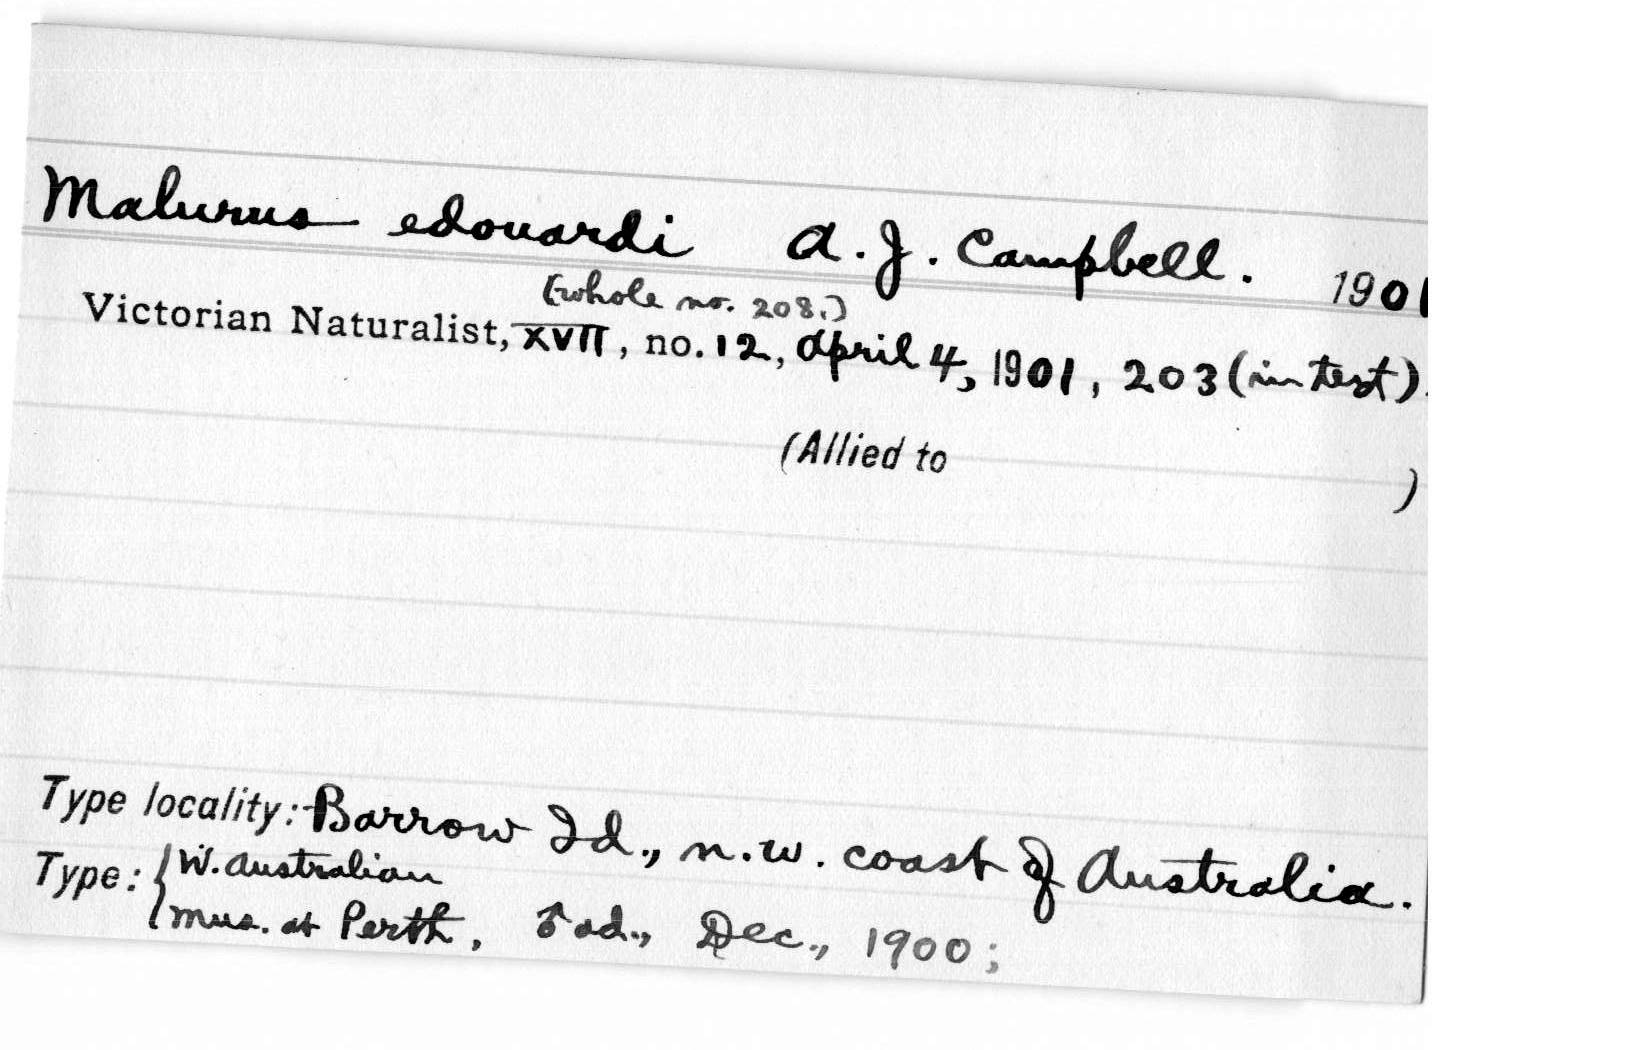 Malurus edouardi A. J. Campbell. 1901
(whole no. 208.)
Victorian Naturalist, XVII, no. 12, April 4, 1901, 203 (in text).
(Allied to )
Type locality: Barrow Id., n.w. coast of Australia.
Type: { W. Australian
Mus. at Perth, ♂ ad., Dec., 1900;